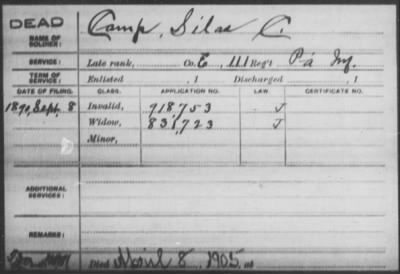 DEAD
NAME OF SOLDIER: Camp, Silas C.
SERVICE: Late rank, Co. E, 111 Reg't Pa Inf.
TERM OF SERVICE: Enlisted , 1 Discharged , 1
DATE OF FILING. CLASS. APPLICATION NO. LAW. CERTIFICATE NO.
1890, Sept. 8 Invalid, 918,753 J
Widow, 831,723 J
Minor,
ADDITIONAL SERVICES:
REMARKS:
Died April 8, 1905, at